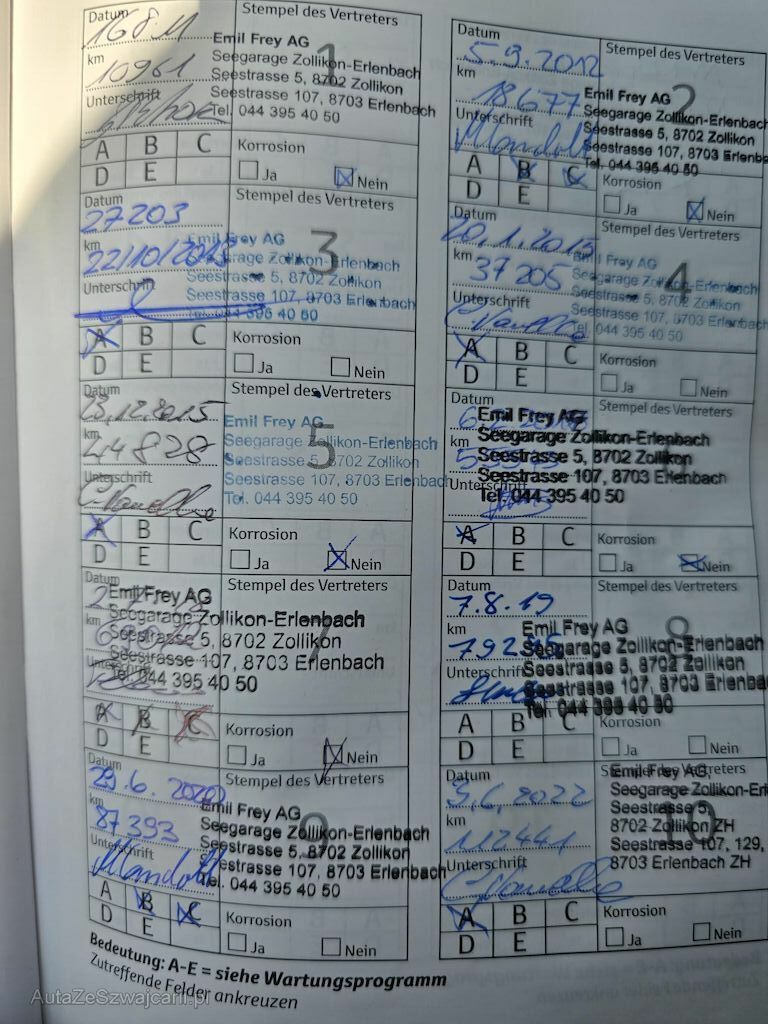 Datum
16.8.11
Stempel des Vertreters
1
Emil Frey AG
Seegarage Zollikon-Erlenbach
Seestrasse 5, 8702 Zollikon
Seestrasse 107, 8703 Erlenbach
Tel. 044 395 40 50
km
10961
Unterschrift
A B C
D E
Korrosion
Ja Nein
Datum
5.9.2012
Stempel des Vertreters
2
Emil Frey AG
Seegarage Zollikon-Erlenbach
Seestrasse 5, 8702 Zollikon
Seestrasse 107, 8703 Erlenba
Tel. 044 395 40 50
km
18677
Unterschrift
A B C
D E
Korrosion
Ja Nein
Datum
27203
Stempel des Vertreters
3
Emil Frey AG
Seegarage Zollikon-Erlenbach
Seestrasse 5, 8702 Zollikon
Seestrasse 107, 8703 Erlenbach
Tel. 044 395 40 50
km
22/10/
Unterschrift
A B C
D E
Korrosion
Ja Nein
Datum
20.1.2015
Stempel des Vertreters
4
Emil Frey AG
Seegarage Zollikon-Erlenbach
Seestrasse 5, 8702 Zollikon
Seestrasse 107, 8703 Erlenbach
Tel. 044 395 40 50
km
37205
Unterschrift
A B C
D E
Korrosion
Ja Nein
Datum
23.12.2015
Stempel des Vertreters
5
Emil Frey AG
Seegarage Zollikon-Erlenbach
Seestrasse 5, 8702 Zollikon
Seestrasse 107, 8703 Erlenbach
Tel. 044 395 40 50
km
44828
Unterschrift
A B C
D E
Korrosion
Ja Nein
Datum
Stempel des Vertreters
Emil Frey AG
Seegarage Zollikon-Erlenbach
Seestrasse 5, 8702 Zollikon
Seestrasse 107, 8703 Erlenbach
Tel. 044 395 40 50
km
Unterschrift
A B C
D E
Korrosion
Ja Nein
Datum
Stempel des Vertreters
7
Emil Frey AG
Seegarage Zollikon-Erlenbach
Seestrasse 5, 8702 Zollikon
Seestrasse 107, 8703 Erlenbach
Tel. 044 395 40 50
km
Unterschrift
A B C
D E
Korrosion
Ja Nein
Datum
7.8.19
Stempel des Vertreters
8
Emil Frey AG
Seegarage Zollikon-Erlenbach
Seestrasse 5, 8702 Zollikon
Seestrasse 107, 8703 Erlenba
Tel. 044 395 40 50
km
Unterschrift
A B C
D E
Korrosion
Ja Nein
Datum
29.6.2020
Stempel des Vertreters
9
Emil Frey AG
Seegarage Zollikon-Erlenbach
Seestrasse 5, 8702 Zollikon
Seestrasse 107, 8703 Erlenbach
Tel. 044 395 40 50
km
87393
Unterschrift
A B C
D E
Korrosion
Ja Nein
Datum
9.6.2022
Stempel des Vertreters
10
Emil Frey AG,
Seegarage Zollikon-Erl
Seestrasse 5,
8702 Zollikon ZH
Seestrasse 107, 129,
8703 Erlenbach ZH
km
112441
Unterschrift
A B C
D E
Korrosion
Ja Nein
Bedeutung: A-E = siehe Wartungsprogramm
Zutreffende Felder ankreuzen
AutaZeSzwajcarii.pl